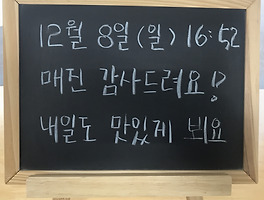 12월 8일(일) 16:52
매진 감사드려요!
내일도 맛있게 뵈요